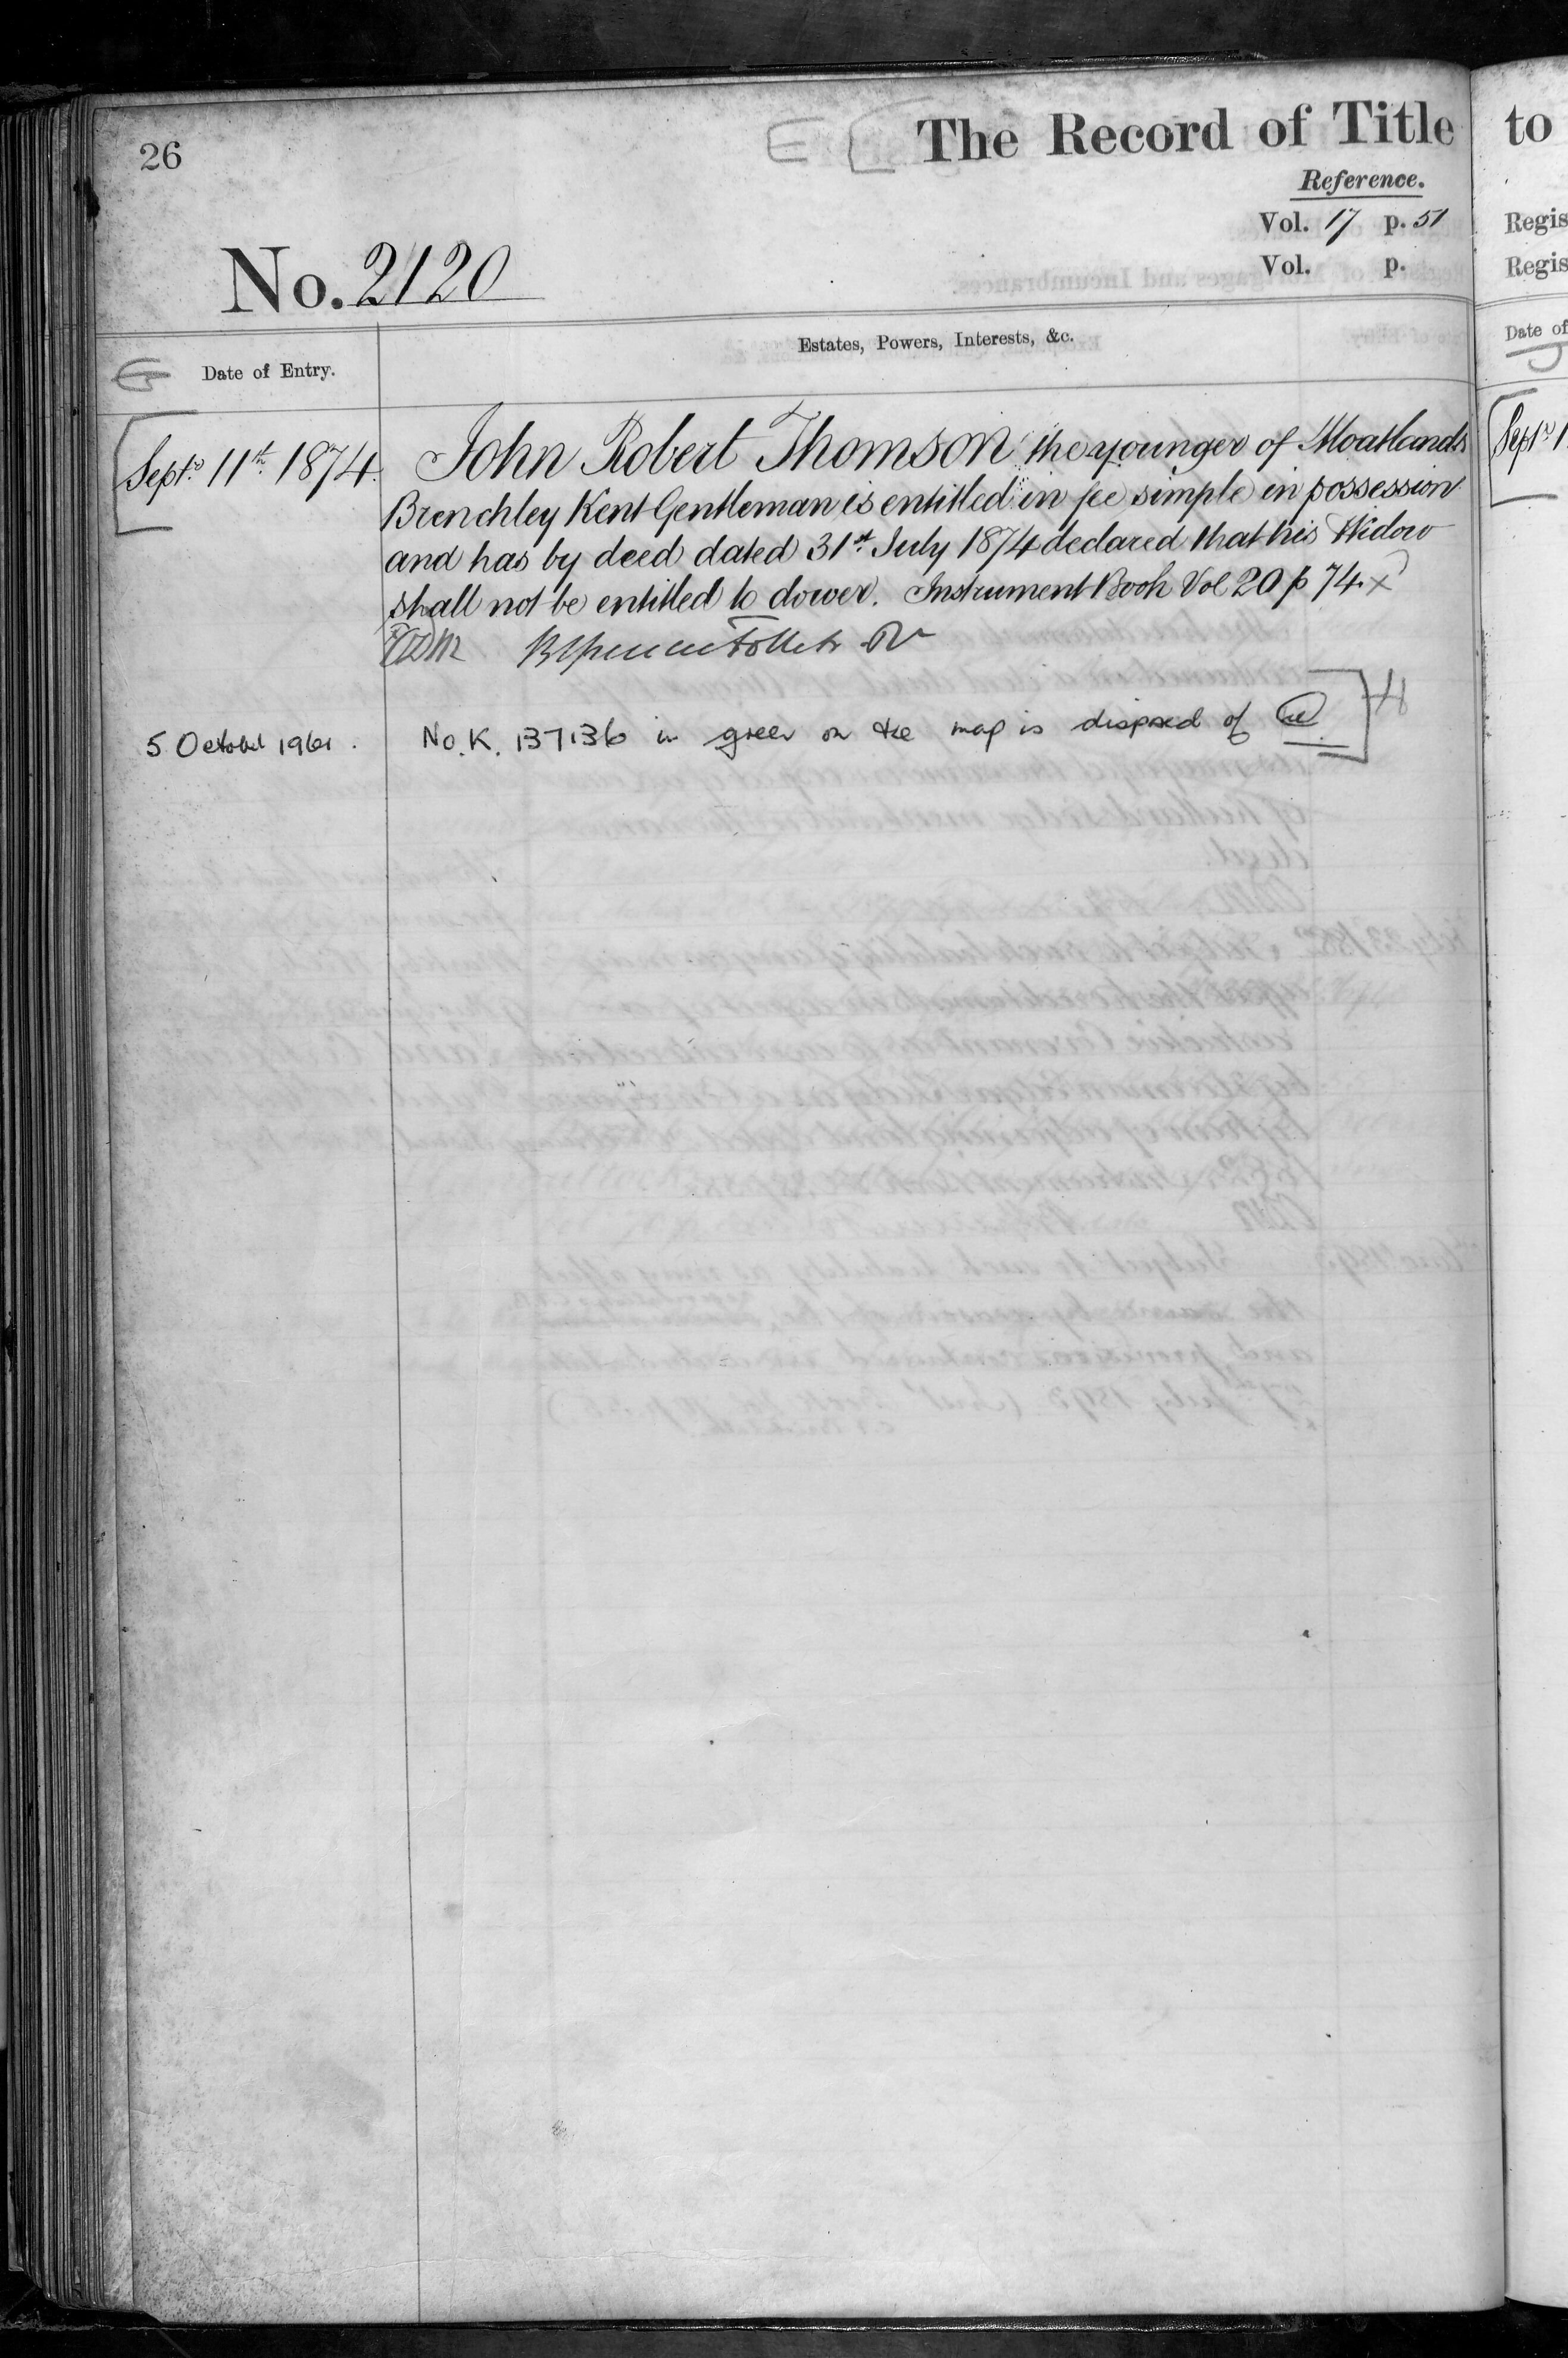 26
The Record of Title
to
Reference.
Vol. 17 p. 51
Regis
No. 2120
Vol. p.
Regis
Date of Entry.
Estates, Powers, Interests, &c.
Date of
Septr 11th 1874.
John Robert Thomson the younger of Moatlands
Septr 1
Brenchley Kent Gentleman is entitled in fee simple in possession
and has by deed dated 31st July 1874 declared that his Widow
shall not be entitled to dower. Instrument Book Vol 20 p 74. x
5 October 1961.
No. K. 137136 in green on the map is disposed of